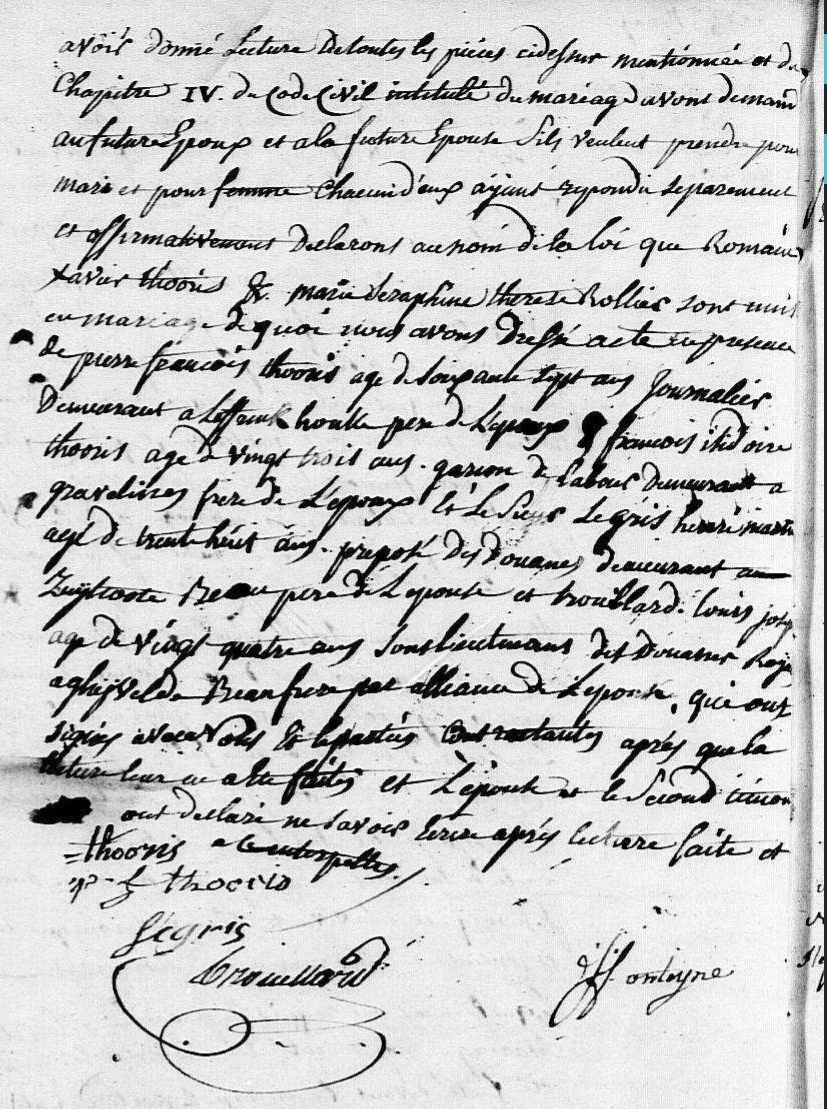 avoir donné Lecture De toutes les pieces cidessus mentionnée et du
Chapitre IV. du Code Civil intitulé du mariage avons demand
au future Epoux et a la future Epouse Sils veulent prendre pour
mari et pour femme Chacun d'eux ayant repondu separement
et affirmativement Declarons au nom de la loi que Romain
Xavier thooris & marie Seraphine therese Rollier sont unis
en mariage de quoi nous avons Dressé acte en presence
de pierre françois thooris age de Soixante Sept ans Journalier
Demeurant a Leffrinkhouke pere de L'epoux & francois isidoire
thooris age de vingt trois ans. garson de labour Demeurant a
gravelines frere de L'epoux Et Le Sieur Legris henri martin
agé de trente huit ans. preposé Des Douanes demeurant au
Zuydcoote Beau pere de L'epouse et trouillard louis josep
age de vingt quatre ans Souslieutenant des Douannes
a ghijvelde Beaufrere par alliance de L'epouse, qui ont
signés avec nous Et les parties Contractantes après que la
lecture leur en a été faites et L'epouse et le Second temoin
ont declaré ne savoir Ecrire après lecture faite et
thooris a ce interpelles.
thooris
Legris
trouillard